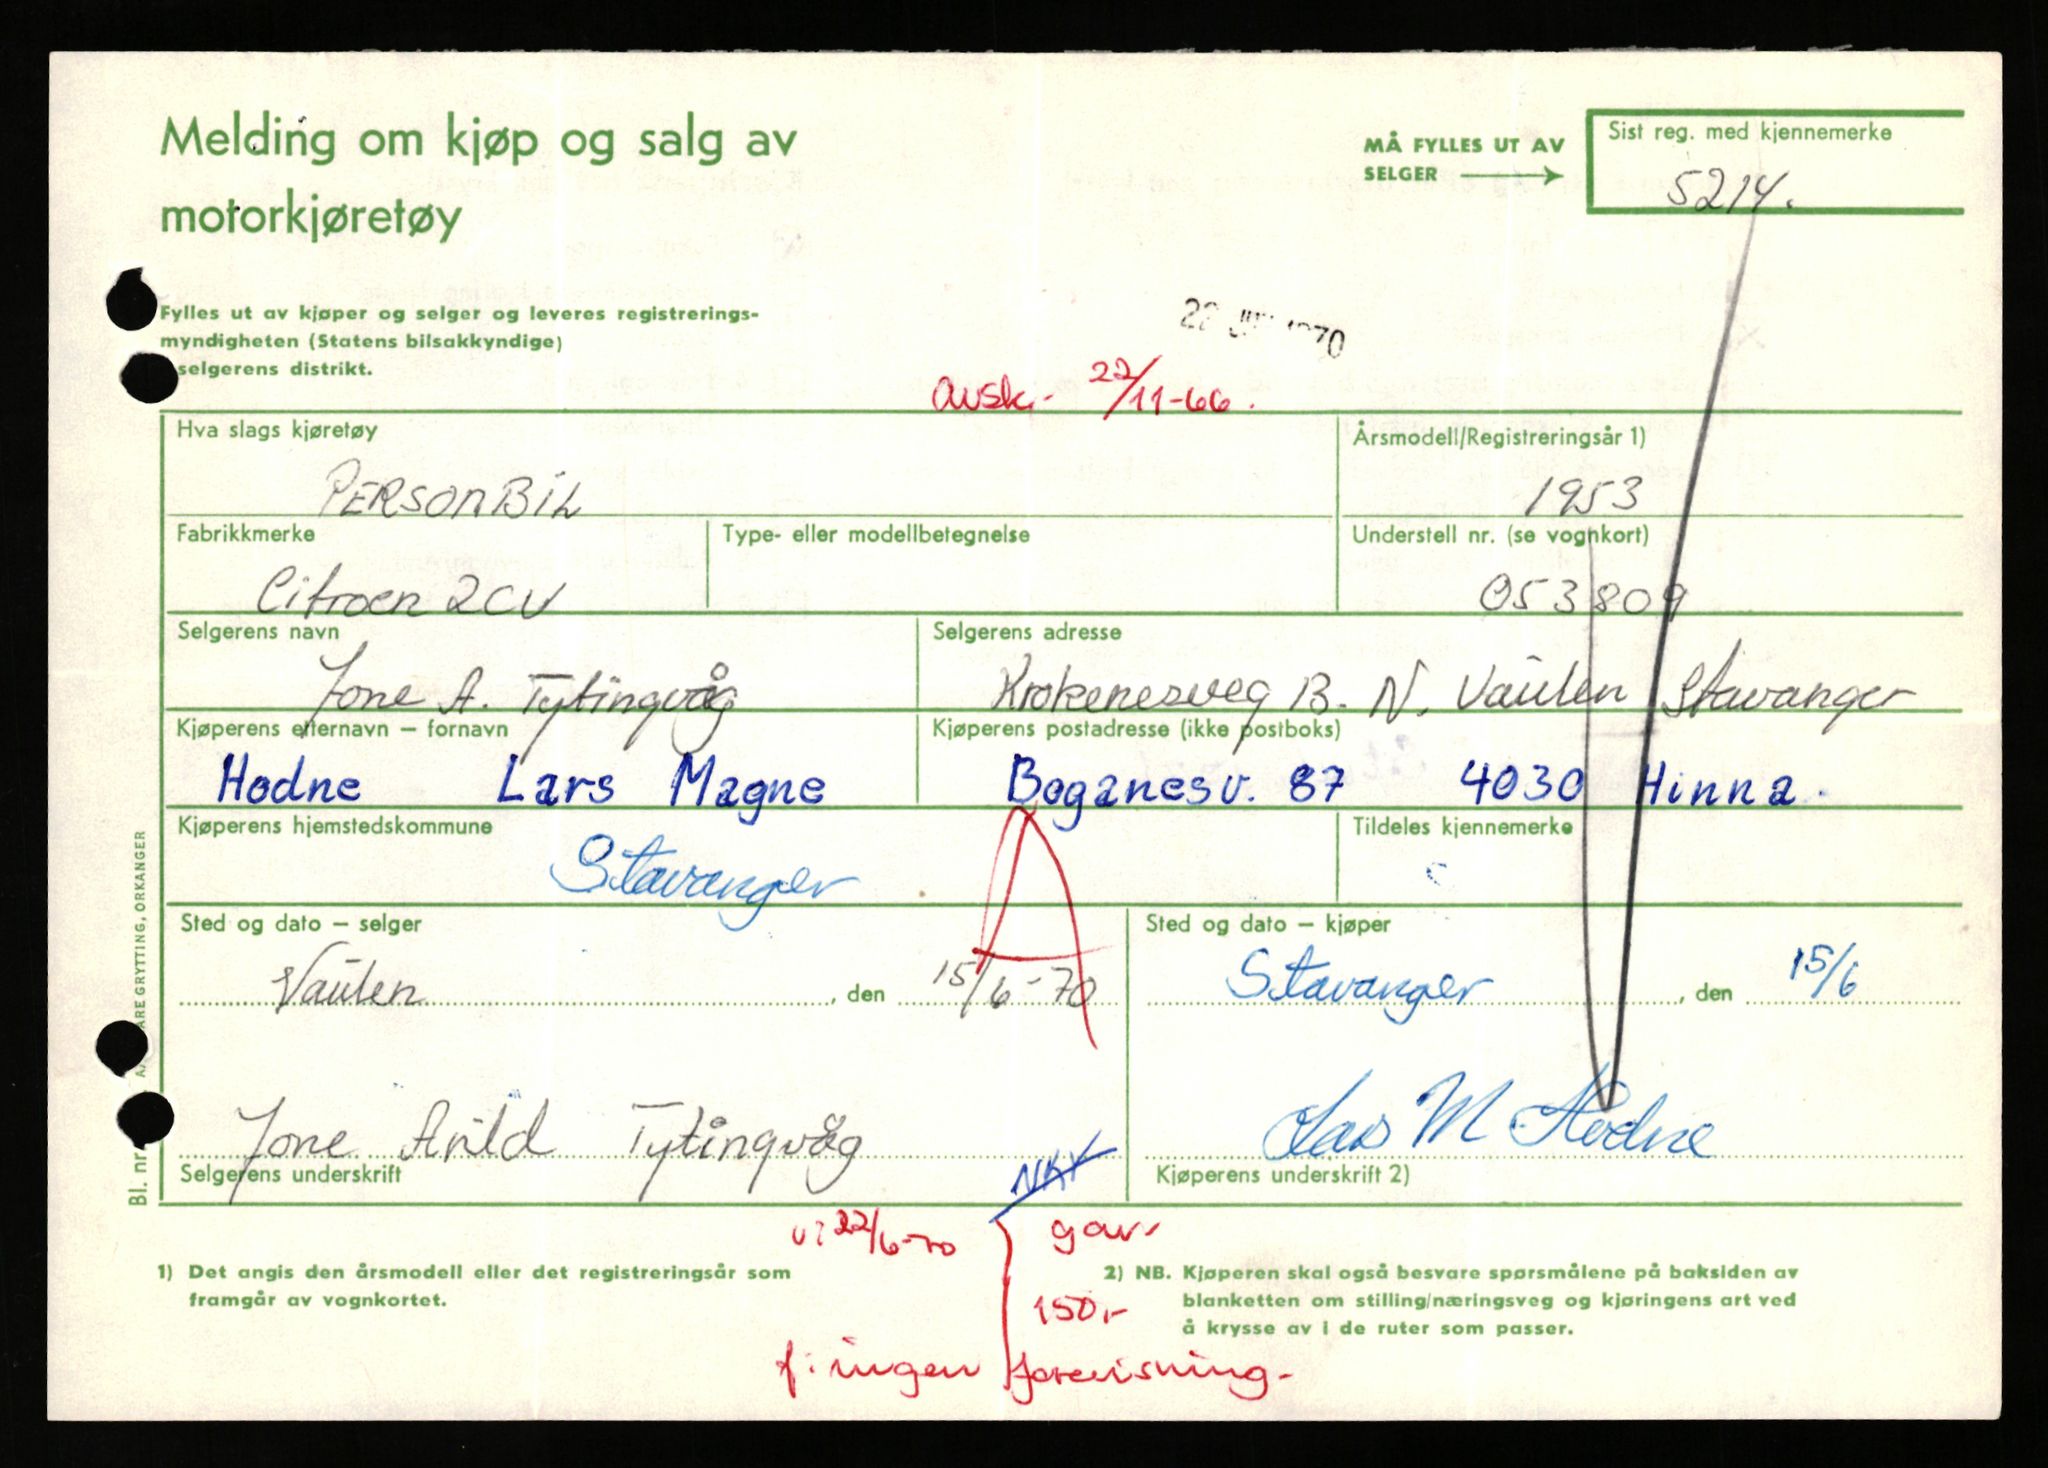 Melding om kjøp og salg av
motorkjøretøy
MÅ FYLLES UT AV
SELGER
Sist reg. med kjennemerke
5214.
Fylles ut av kjøper og selger og leveres registrerings-
myndigheten (Statens bilsakkyndige)
selgerens distrikt.
22 1970
Avsk. 22/11-66.
Hva slags kjøretøy
PERSONBIL
Årsmodell/Registreringsår 1)
1953
Fabrikkmerke
Citroen 2CV
Type- eller modellbetegnelse
Understell nr. (se vognkort)
053809
Selgerens navn
Jone A. Tytingvåg
Selgerens adresse
Krokenesveg B. N. Vaulen Stavanger
Kjøperens etternavn – fornavn
Hodne Lars Magne
Kjøperens postadresse (ikke postboks)
Boganesv. 87 4030 Hinna.
Kjøperens hjemstedskommune
Stavanger
A
Tildeles kjennemerke
Sted og dato – selger
Vaulen, den 15/6-70
Sted og dato – kjøper
Stavanger, den 15/6
Jone Arild Tytingvåg
Selgerens underskrift
Lars M Hodne
Kjøperens underskrift 2)
Bl. nr.
ARE GRYTTING, ORKANGER
22/6-70
gav
150,-
f: ingen forevisning-
1) Det angis den årsmodell eller det registreringsår som
framgår av vognkortet.
2) NB. Kjøperen skal også besvare spørsmålene på baksiden av
blanketten om stilling/næringsveg og kjøringens art ved
å krysse av i de ruter som passer.